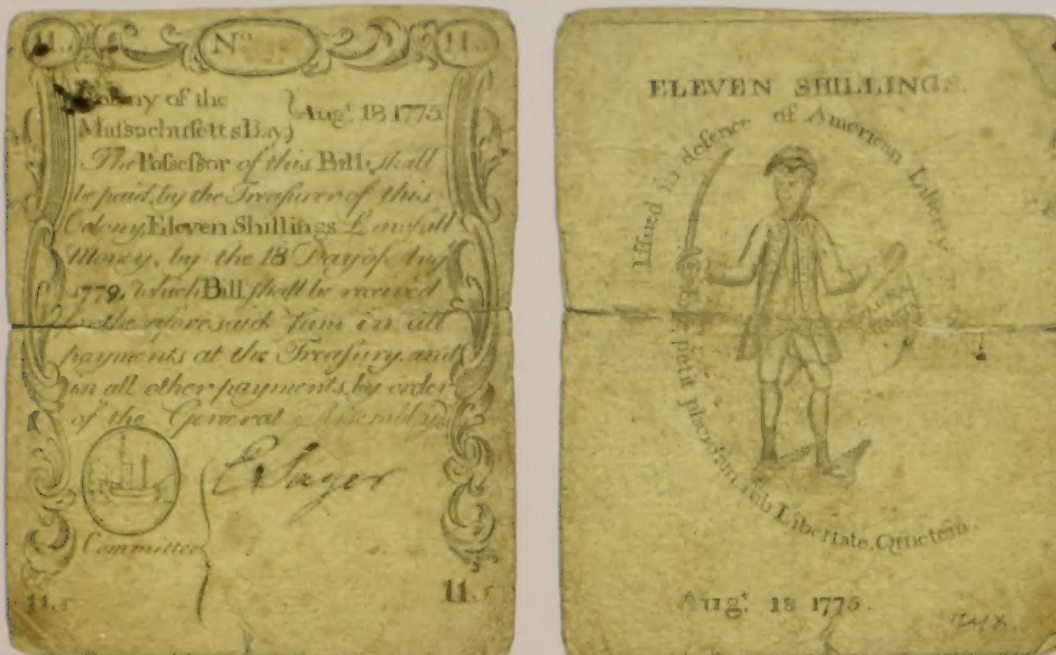 11.s No 11.s
Colony of the
Maſsachuſetts Bay
Augt. 18 1775
The Poſseſsor of this Bill, ſhall
be paid, by the Treaſurer of this
Colony, Eleven Shillings Lawfull
Money, by the 18 Day of Augt
1779, which Bill ſhall be received
for the aforesaid Sum in all
payments at the Treaſury, and
in all other payments by order
of the General Aſsembly
E Sayer
Committee
11.s 11.s
ELEVEN SHILLINGS.
Iſſued in defence of American Liberty.
Enſe petit placidam, ſub Libertate, Quietem.
MAGNA
Augt. 18 1775.